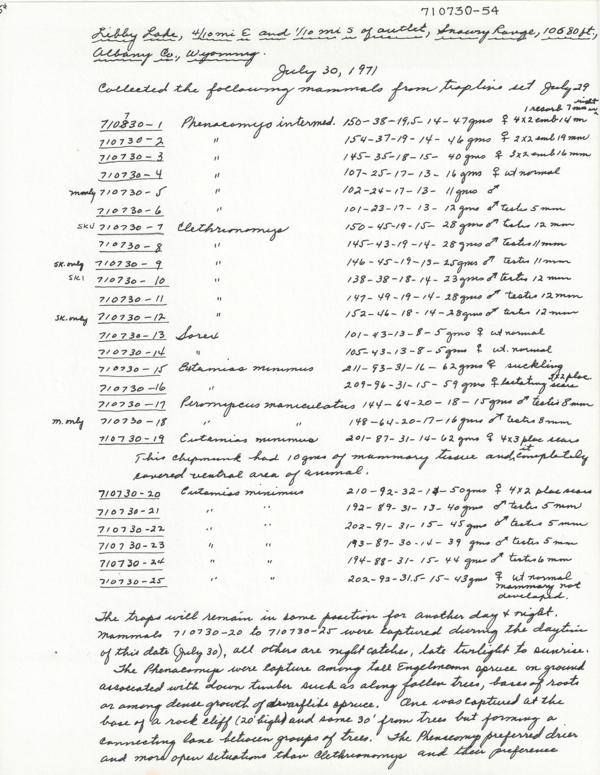 710730-54
Libby Lake, 4/10 mi E and 1/10 mi S of outlet, Snowy Range, 10680 ft.,
Albany Co., Wyoming.
July 30, 1971
Collected the following mammals from trapline set July 29
1 resorb 7mm right
710730-1 Phenacomys intermed. 150-38-19.5-14-47gms ♀ 4x2 emb 14 m
710730-2 " 154-37-19-14-46 gms ♀ 2x2 emb 19 mm
710730-3 " 145-35-18-15-40 gms ♀ 3x2 emb 16 mm
710730-4 " 107-25-17-13-16 gms ♀ ut normal
m only 710730-5 " 102-24-17-13-11 gms ♂
710730-6 " 101-23-17-13-12 gms ♂ testis 5 mm
SK 710730-7 Clethrionomys 150-45-19-15-28 gms ♂ testis 12 mm
710730-8 " 145-43-19-14-28 gms ♂ testis 11 mm
SK. only 710730-9 " 146-45-19-13-25 gms ♂ testis 11 mm
SK 710730-10 " 138-38-18-14-23 gms ♂ testis 12 mm
710730-11 " 147-49-19-14-28 gms ♂ testis 12 mm
SK. only 710730-12 " 152-46-18-14-28 gms ♂ testis 12 mm
710730-13 Sorex 101-43-13-8-5 gms ♀ ut normal
710730-14 " 105-43-13-8-5 gms ♀ ut. normal
710730-15 Eutamias minimus 211-93-31-16-62 gms ♀ suckling
710730-16 " 209-96-31-15-59 gms ♀ lactating 4x2 plac scars
710730-17 Peromyscus maniculatus 144-64-20-18-15 gms ♂ testis 8 mm
m. only 710730-18 " " 148-64-20-17-16 gms ♂ testis 8 mm
710730-19 Eutamias minimus 201-87-31-14-62 gms ♀ 4x3 plac scars
This chipmunk had 10 gms of mammary tissue and it completely
covered ventral area of animal.
710730-20 Eutamias minimus 210-92-32-14-50 gms ♀ 4x2 plac scars
710730-21 " " 192-89-31-13-40 gms ♂ testis 5 mm
710730-22 " " 202-91-31-15-45 gms ♂ testis 5 mm
710730-23 " " 193-87-30-14-39 gms ♂ testis 5 mm
710730-24 " " 194-88-31-15-44 gms ♂ testis 6 mm
710730-25 " " 202-92-31.5-15-43 gms ♀ ut normal
mammary not
developed.
The traps will remain in same position for another day & night.
Mammals 710730-20 to 710730-25 were captured during the daytime
of this date (July 30), all others are night catches, late twilight to sunrise.
The Phenacomys were capture among tall Engelmann spruce on ground
associated with down timber such as along fallen trees, bases of roots
or among dense growth of dwarflike spruce. One was captured at the
base of a rock cliff (20' high) and some 30' from trees but forming a
connecting lane between groups of trees. The Phenacomys preferred drier
and more open situations than Clethrionomys and their preference